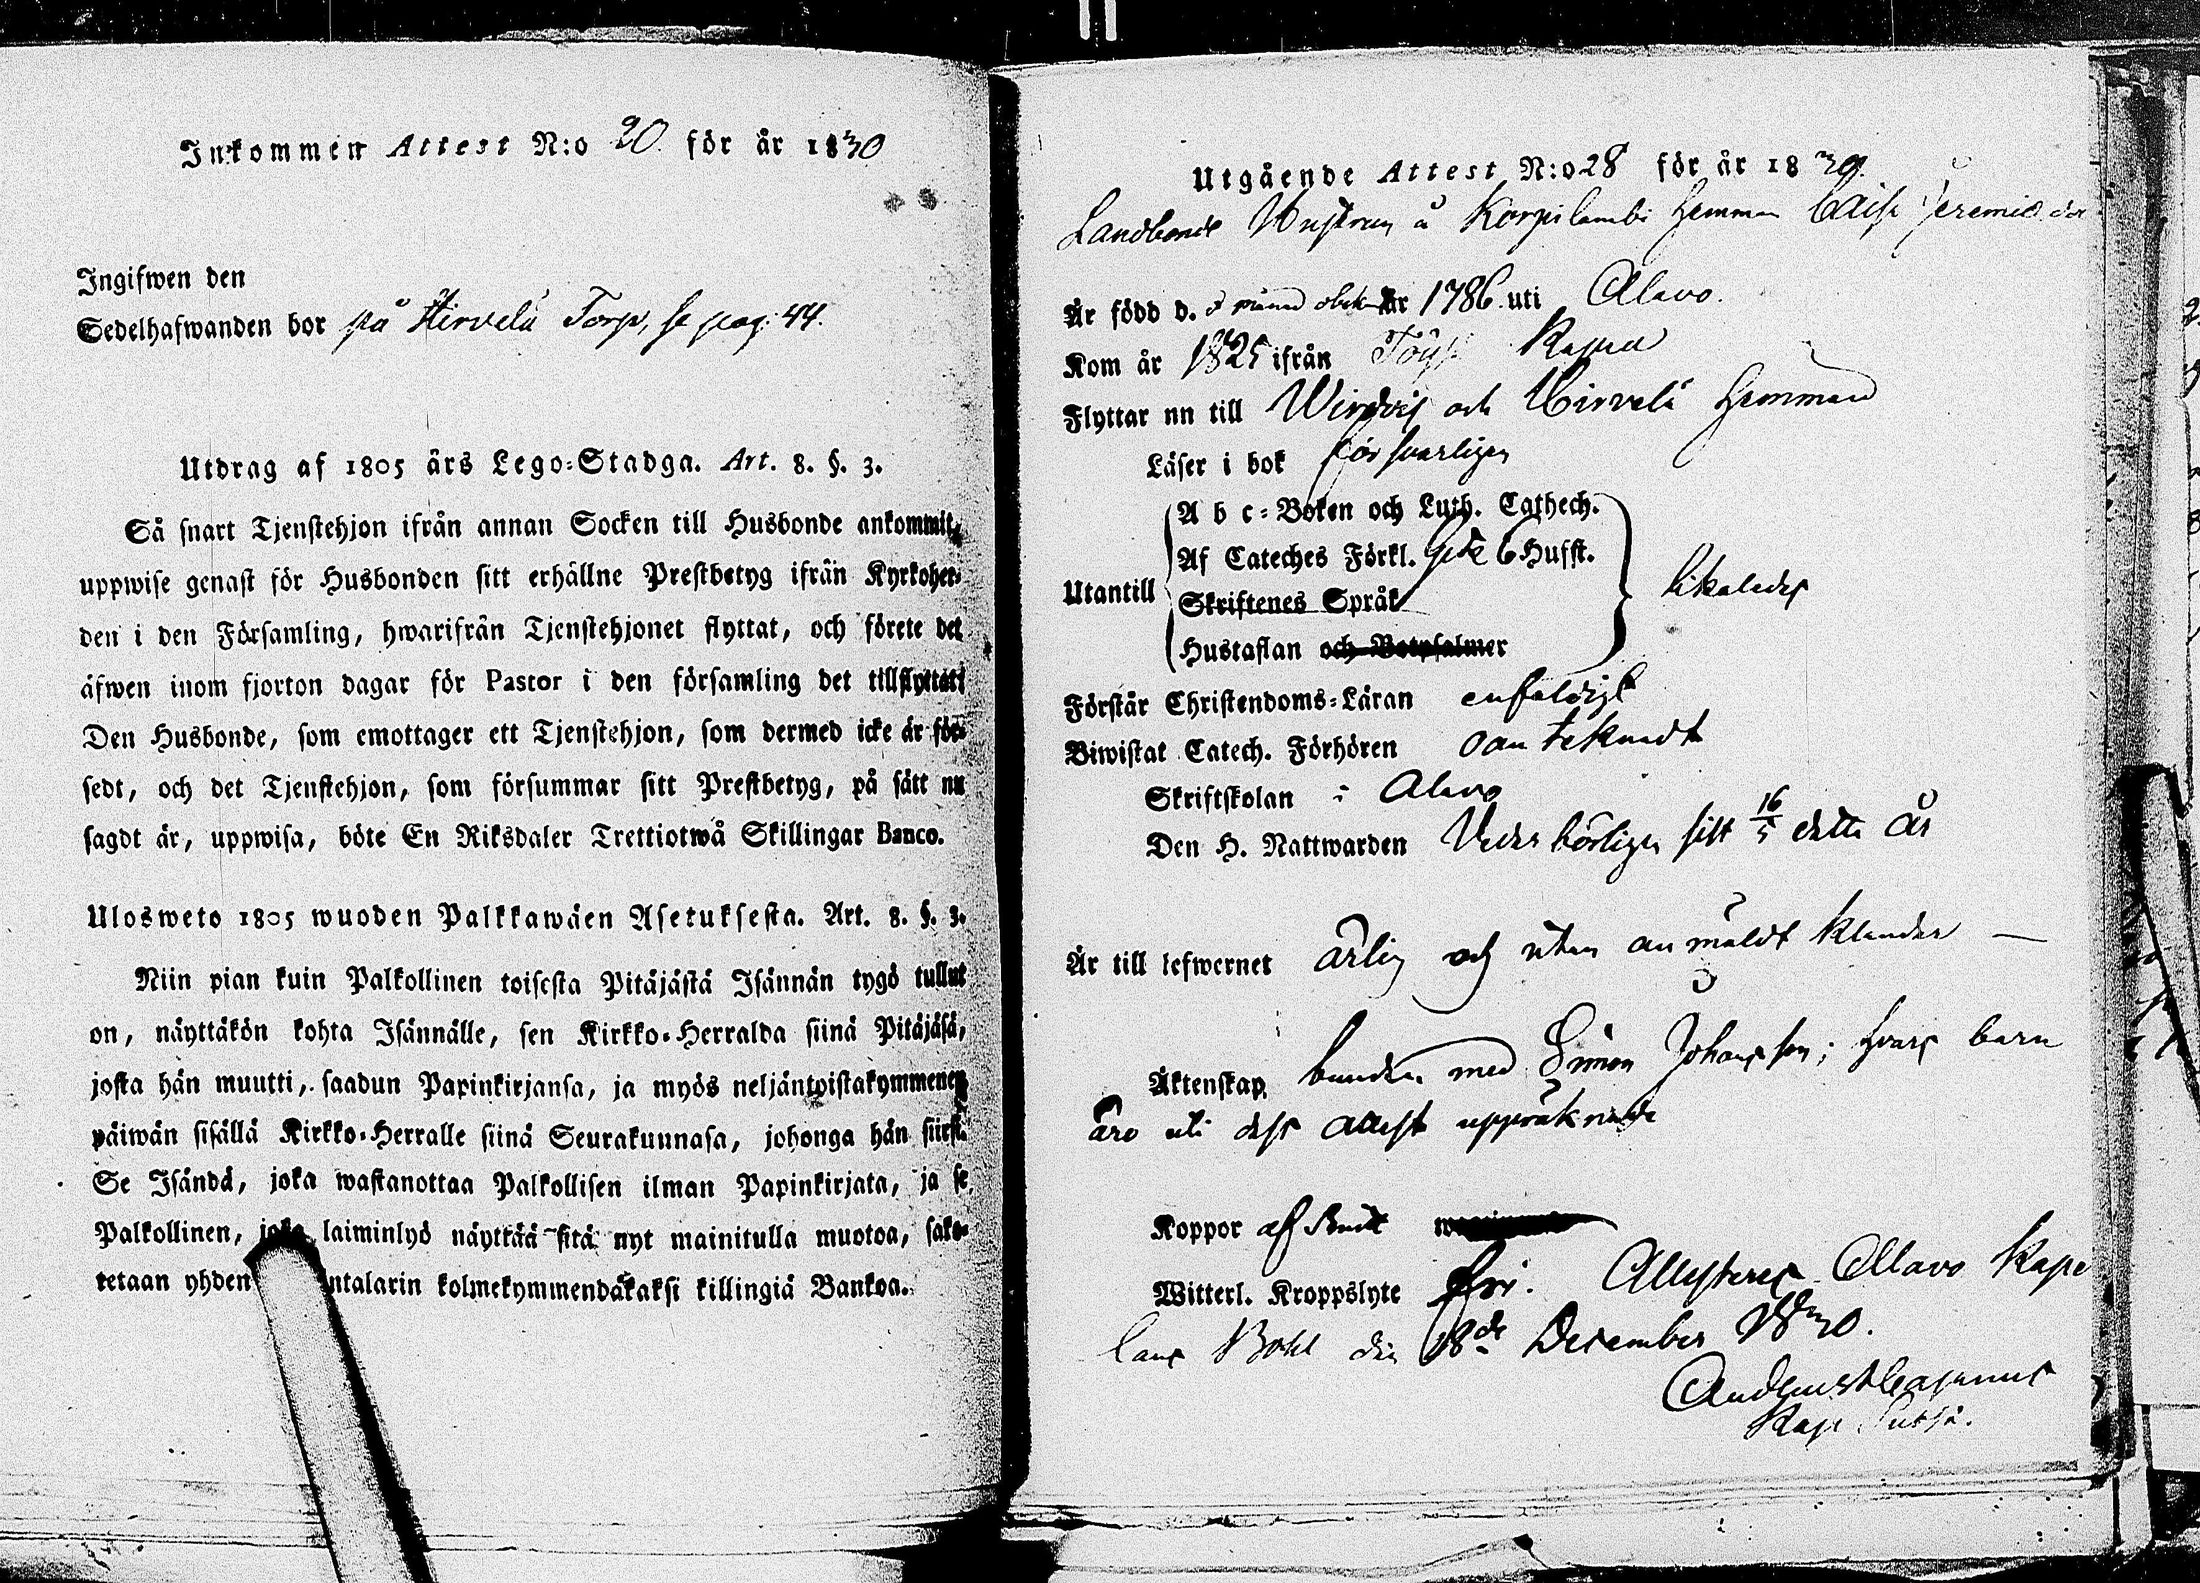 Inkommen Attest N:o 20 för år 1830
Ingifwen den
Sedelhafwanden bor på Hirvelä Torp, se pag: 44.
Utdrag af 1805 års Lego-Stadga. Art. 8. §. 3.
Så snart Tjenstehjon ifrån annan Socken till Husbonde ankommit,
uppwise genast för Husbonden sitt erhållne Prestbetyg ifrån Kyrkoher-
den i den Församling, hwarifrån Tjenstehjonet flyttat, och förete det
äfwen inom fjorton dagar för Pastor i den församling det tillflyttat.
Den Husbonde, som emottager ett Tjenstehjon, som dermed icke är för-
sedt, och det Tjenstehjon, som försummar sitt Prestbetyg, på sätt nu
sagdt är, uppwisa, böte En Riksdaler Trettiotwå Skillingar Banco.
Ulosweto 1805 wuoden Palkkawäen Asetuksesta. Art. 8. §. 3.
Niin pian kuin Palkollinen toisesta Pitäjästä Isännän tygö tullut
on, näyttäkön kohta Isännälle, sen Kirkko-Herralda siinä Pitäjäsä,
josta hän muutti, saadun Papinkirjansa, ja myös neljäntoistakymmenen
päiwän sisällä Kirkko-Herralle siinä Seurakunnasa, johonga hän siirsi.
Se Isändä, joka wastanottaa Palkollisen ilman Papinkirjata, ja se
Palkollinen, joka laiminlyö näyttää sitä nyt mainitulla muotoa, sako-
tetaan yhden ntalarin kolmekymmendäkaksi killingiä Bankoa.
Utgående Attest N:o 28 för år 1830.
Landbonde Hustrun å Korpilambi Hemman Caisa Jeremiæ dr
Är född d. månad obekant År 1786 uti Alavo.
Kom år 1825 ifrån Töysä Kapell
Flyttar nn till Wirdois och Hirvelä Hemman
Läser i bok försvarligen
A b c-Boken och Luth. Cathech.
Af Cateches Förkl. 6 Hufst.
Utantill Skriftenes Språk likaledes
Hustaflan och Botpsalmer
Förstår Christendoms-Läran enfaldigt
Biwistat Catech. Förhören oanteknadt
Skriftskolan i Alavo
Den H. Nattwarden Vederbörligen sist 16/5 detta År
Är till lefwernet ärlig och utan anmäldt klander —
Äktenskap bunden med Simon Johansson; hvars barn
äro uti dess attest uppräknade
Koppor af Smitt
Witterl. Kroppslyte fri. Attesteras Alavo Kapel
lans Bohl den 18de December 1830.
And: Gust Cajanus
Kap: Subst.